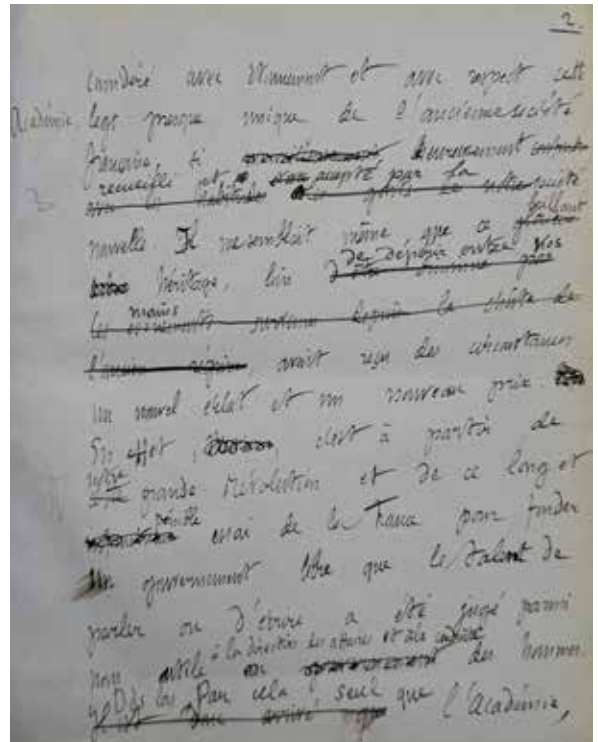 2.
considéré avec étonnement et avec respect cette
Académie, legs presque unique de l'ancienne société
française, si heureusement
recueilli et accepté par la
nouvelle. Il me semblait même que ce brillant
héritage, loin de dépérir entre vos
mains
, avait reçu des circonstances
un nouvel éclat et un nouveau prix.
En effet, c'est à partir de
notre grande Révolution et de ce long et
pénible essai de la France pour fonder
un gouvernement libre que le talent de
parler ou d'écrire a été jugé parmi
nous utile à la direction des affaires et à la conduite des hommes.
Dès lors Par cela seul que l'Académie,